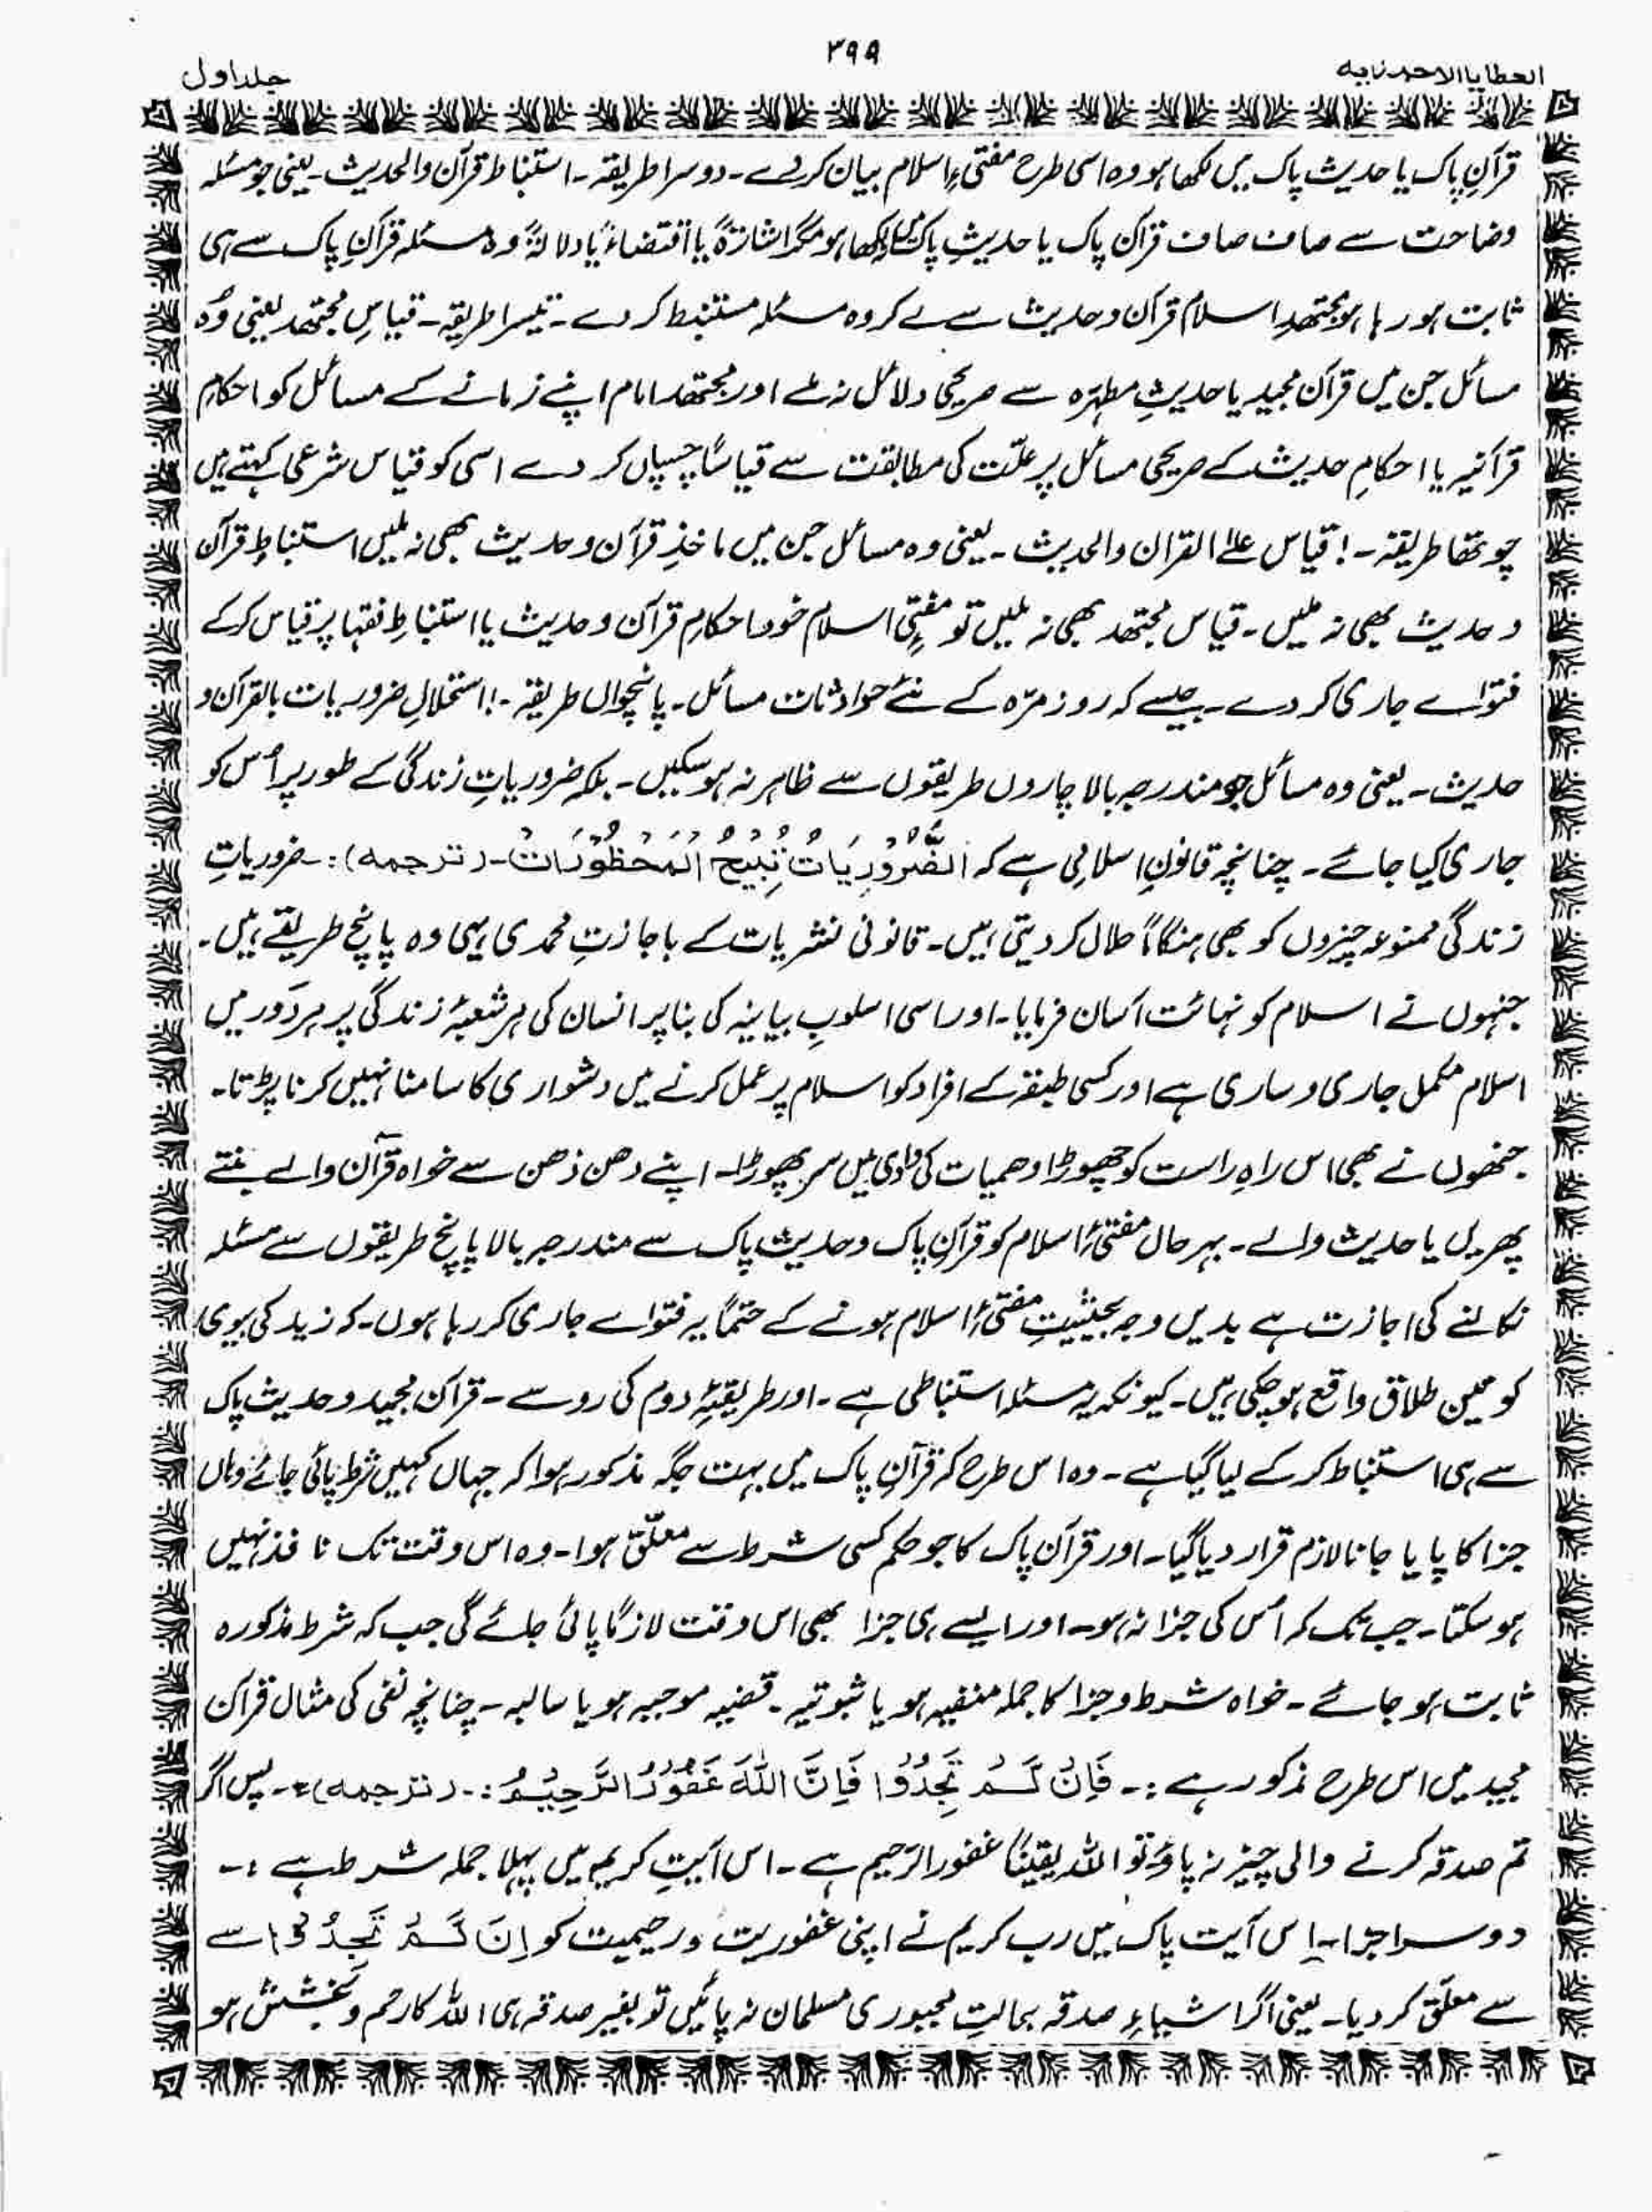 ۳۹۵
العطایا الاحمدنابیہ
جلد اول
قرآنِ پاک یا حدیث پاک میں لکھا ہو وہ اسی طرح مفتیٔ اسلام بیان کر دے۔ دوسرا طریقہ۔ استنباط قرآن والحدیث۔ یعنی جو مسئلہ
وضاحت سے صاف صاف قرآن پاک یا حدیثِ پاک میں لکھا ہو مگر اشارۃً یا اقتضاءً یا دلالۃً وہ مسئلہ قرآنِ پاک سے ہی
ثابت ہو رہا ہو مجتھدِ اسلام قرآن و حدیث سے لے کر وہ مسئلہ مستنبط کر دے۔ تیسرا طریقہ۔ قیاسِ مجتھد یعنی وُہ
مسائل جن میں قرآن مجید یا حدیثِ مطہرّہ سے صریحی دلائل نہ ملے اور مجتھد امام اپنے زمانے کے مسائل کو احکامِ
قرآنیہ یا احکامِ حدیث کے صریحی مسائل پر علّت کی مطابقت سے قیاسًا چسپاں کر دے اسی کو قیاس شرعی کہتے ہیں
چوتھا طریقہ۔! قیاس علےٰ القران والحدیث۔ یعنی وہ مسائل جن میں ماخذِ قرآن و حدیث بھی نہ ملیں استنباطِ قرآن
و حدیث بھی نہ ملیں۔ قیاس مجتھد بھی نہ ملیں تو مفتیٔ اسلام خود احکامِ قرآن و حدیث یا استنباطِ فقہا پر قیاس کر کے
فتوٰے جاری کر دے۔ جیسے کہ روزمرّہ کے نئے حوادثات مسائل۔ پانچواں طریقہ۔! استحلالِ ضروریات بالقرآن و
حدیث۔ یعنی وہ مسائل جو مندرجہ بالا چاروں طریقوں سے ظاہر نہ ہو سکیں۔ بلکہ ضروریاتِ زندگی کے طور پر اُس کو
جاری کیا جائے۔ چنانچہ قانونِ اسلامی ہے کہ اَلضَّرُوْرِیَاتُ تُبِیْحُ الْمَحْظُوْرَاتْ۔ (ترجمہ):۔ ضروریاتِ
زندگی ممنوعہ چیزوں کو بھی ہنگامًا حلال کر دیتی ہیں۔ قانونی نشریات کے باجازتِ محمدی یہی وہ پانچ طریقے ہیں۔
جنہوں نے اسلام کو نہائت آسان فرمایا۔ اور اسی اسلوبِ بیانیہ کی بنا پر انسان کی ہر شعبۂ زندگی پر ہر دَور میں
اسلام مکمل جاری و ساری ہے اور کسی طبقہ کے افراد کو اسلام پر عمل کرنے میں دشواری کا سامنا نہیں کرنا پڑتا۔
جنھوں نے بھی اس راہِ راست کو چھوڑا وھمیات کی وادی میں سر پھوڑا۔ اپنے دھن ذھن سے خواہ قرآن والے بنتے
پھریں یا حدیث والے۔ بہر حال مفتیٔ اسلام کو قرآنِ پاک و حدیث پاک سے مندرجہ بالا پانچ طریقوں سے مسئلہ
نکالنے کی اجازت ہے بدیں وجہ بحیثیتِ مفتیٔ اسلام ہونے کے حتمًا یہ فتوٰے جاری کر رہا ہوں۔ کہ زید کی بیوی
کو تین طلاق واقع ہو چکی ہیں۔ کیونکہ یہ مسئلہ استنباطی ہے۔ اور طریقۂ دوم کی رو سے۔ قرآن مجید و حدیث پاک
سے ہی استنباط کر کے لیا گیا ہے۔ وہ اس طرح کہ قرآنِ پاک میں بہت جگہ مذکور ہوا کہ جہاں کہیں شرط پائی جائے وہاں
جزا کا پایا جانا لازم قرار دیا گیا۔ اور قرآن پاک کا جو حکم کسی شرط سے معلّق ہوا۔ وہ اس وقت تک نافذ نہیں
ہو سکتا۔ جب تک کہ اُس کی جزا نہ ہو۔ اور ایسے ہی جزا بھی اس وقت لازمًا پائی جائے گی جب کہ شرط مذکورہ
ثابت ہو جائے۔ خواہ شرط و جزا کا جملہ منفیہ ہو یا ثبوتیہ۔ قضیہ موجبہ ہو یا سالبہ۔ چنانچہ نفی کی مثال قرآن
مجید میں اس طرح مذکور ہے:۔ فَاِنْ لَمْ تَجِدُوْا فَاِنَّ اللّٰہَ غَفُوْرُ الرَّحِیْمُ:۔ (ترجمہ)؛۔ پس اگر
تم صدقہ کرنے والی چیز نہ پاؤ تو اللہ یقینًا غفور الرّحیم ہے۔ اس آیتِ کریمہ میں پہلا جملہ شرط ہے:۔
دوسرا جزا۔ اِس آیت پاک میں رب کریم نے اپنی غفوریت و رحیمیت کو اِنَ لَمْ تَجِدُوْا سے
سے معلّق کر دیا۔ یعنی اگر اشیاءِ صدقہ بحالتِ مجبوری مسلمان نہ پائیں تو بغیر صدقہ ہی اللہ کا رحم و بخشش ہو